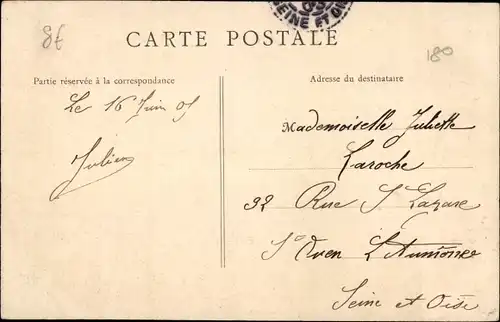 SEINE ET OI
8€
CARTE POSTALE
180
Partie réservée à la correspondance
Adresse du destinataire
Le 16 Juin 05
Julien
Mademoiselle Juliette
Laroche
32 Rue S Lazare
St Ouen L'Aumône
Seine et Oise